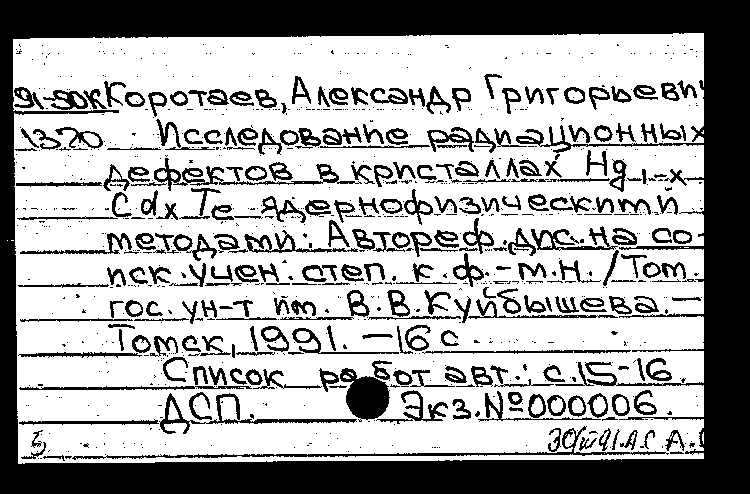 91-90К Коротаев, Александр Григорьевич
1370 Исследование радиационных
дефектов в кристаллах Hg1-x
CdxTe ядернофизическими
методами: Автореф.дис.на со-
иск.учен.степ. к.ф.-м.н./Том.
гос.ун-т им. В.В.Куйбышева.—
Томск, 1991. —16 с.
Список работ авт.: с.15-16.
ДСП. Экз.№000006.